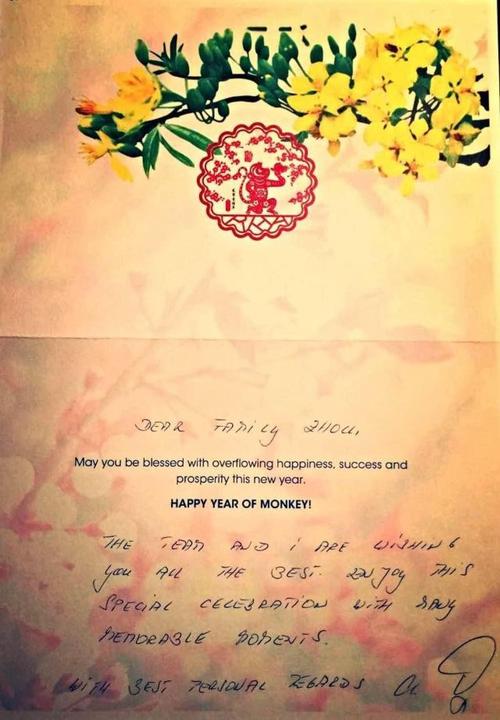 DEAR FAMILY ZHOU,
May you be blessed with overflowing happiness, success and
prosperity this new year.
HAPPY YEAR OF MONKEY!
THE TEAM AND I ARE WISHING
you ALL THE BEST. ENJOY THIS
SPECIAL CELEBRATION WITH MANY
MEMORABLE MOMENTS.
WITH BEST PERSONAL REGARDS